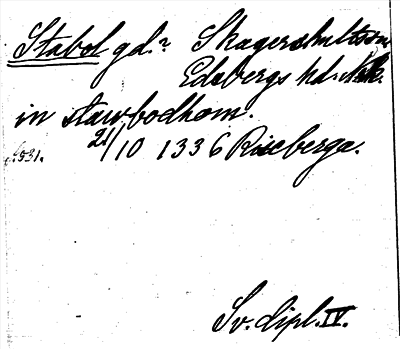 Stabol gd.? Skagershultssn
Edsbergs hd.
in stawbodhom.
s. 531. 21/10 1336 Riseberga.
Sv. dipl. IV.